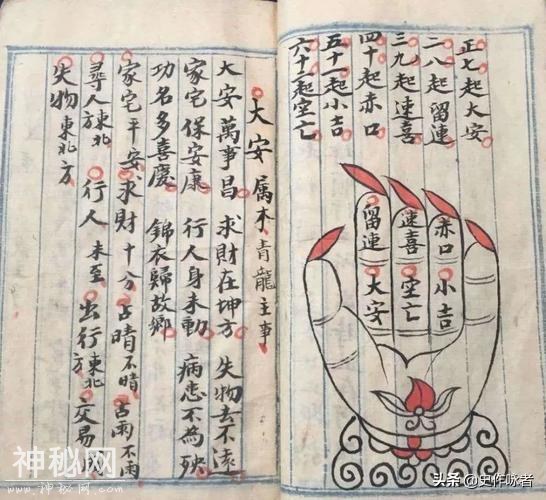 正七起大安
二八起留連
三九起速喜
四十起赤口
五十一起小吉
六十二起空亡
留連
速喜
赤口
大安
空亡
小吉
大安 属木 青龍主事
大安萬事昌 求財在坤方 失物去不遠
家宅保安康 行人身未動 病患不為殃
功名多喜慶 錦衣歸故鄉
家宅平安 求財十分 占晴不晴 占雨不雨
尋人東北 行人未至 出行東北方 交易
失物東北方
神秘网
头条 @史作咏者